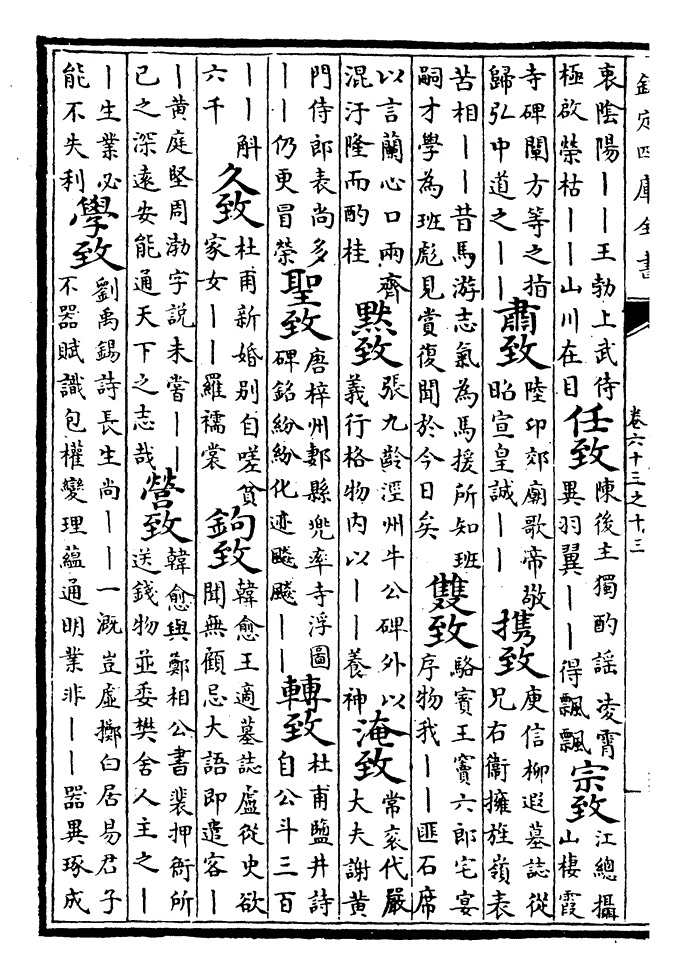 欽定四庫全書
卷六十三之十三
衷陰陽｜｜王勃上武侍極啟榮枯｜｜山川在目 任致 陳後主獨酌謡凌霄異羽翼｜｜得飄飄 宗致 江總攝山棲霞
寺碑闡方等之指歸弘中道之｜｜ 肅致 陸卬郊廟歌帝敬昭宣皇誠｜｜ 携致 庾信柳遐墓誌從兄右衞擁旌嶺表
苦相｜｜昔馬游志氣為馬援所知班嗣才學為班彪見賞復聞於今日矣 雙致 駱賓王竇六郎宅宴序物我｜｜匪石席
以言蘭心口兩齊混汙隆而酌桂 默致 張九齡涇州牛公碑外以義行格物内以｜｜養神 淹致 常衮代嚴大夫謝黄
門侍郎表尚多｜｜仍更冒榮 聖致 唐梓州郪縣兜率寺浮圖碑銘紛紛化迹飈飈｜｜ 轉致 杜甫鹽井詩自公斗三百
｜｜斛六千 久致 杜甫新婚别自嗟貧家女｜｜羅襦裳 鉤致 韓愈王適墓誌盧從史欲聞無顧忌大語即遣客｜
｜黄庭堅周渤字說未嘗｜｜已之深遠安能通天下之志哉 營致 韓愈與鄭相公書裴押衙所送錢物並委樊舍人主之｜
｜生業必能不失利 學致 劉禹錫詩長生尚｜｜一溉豈虚擲白居易君子不器賦識包權變理蘊通明業非｜｜器異琢成